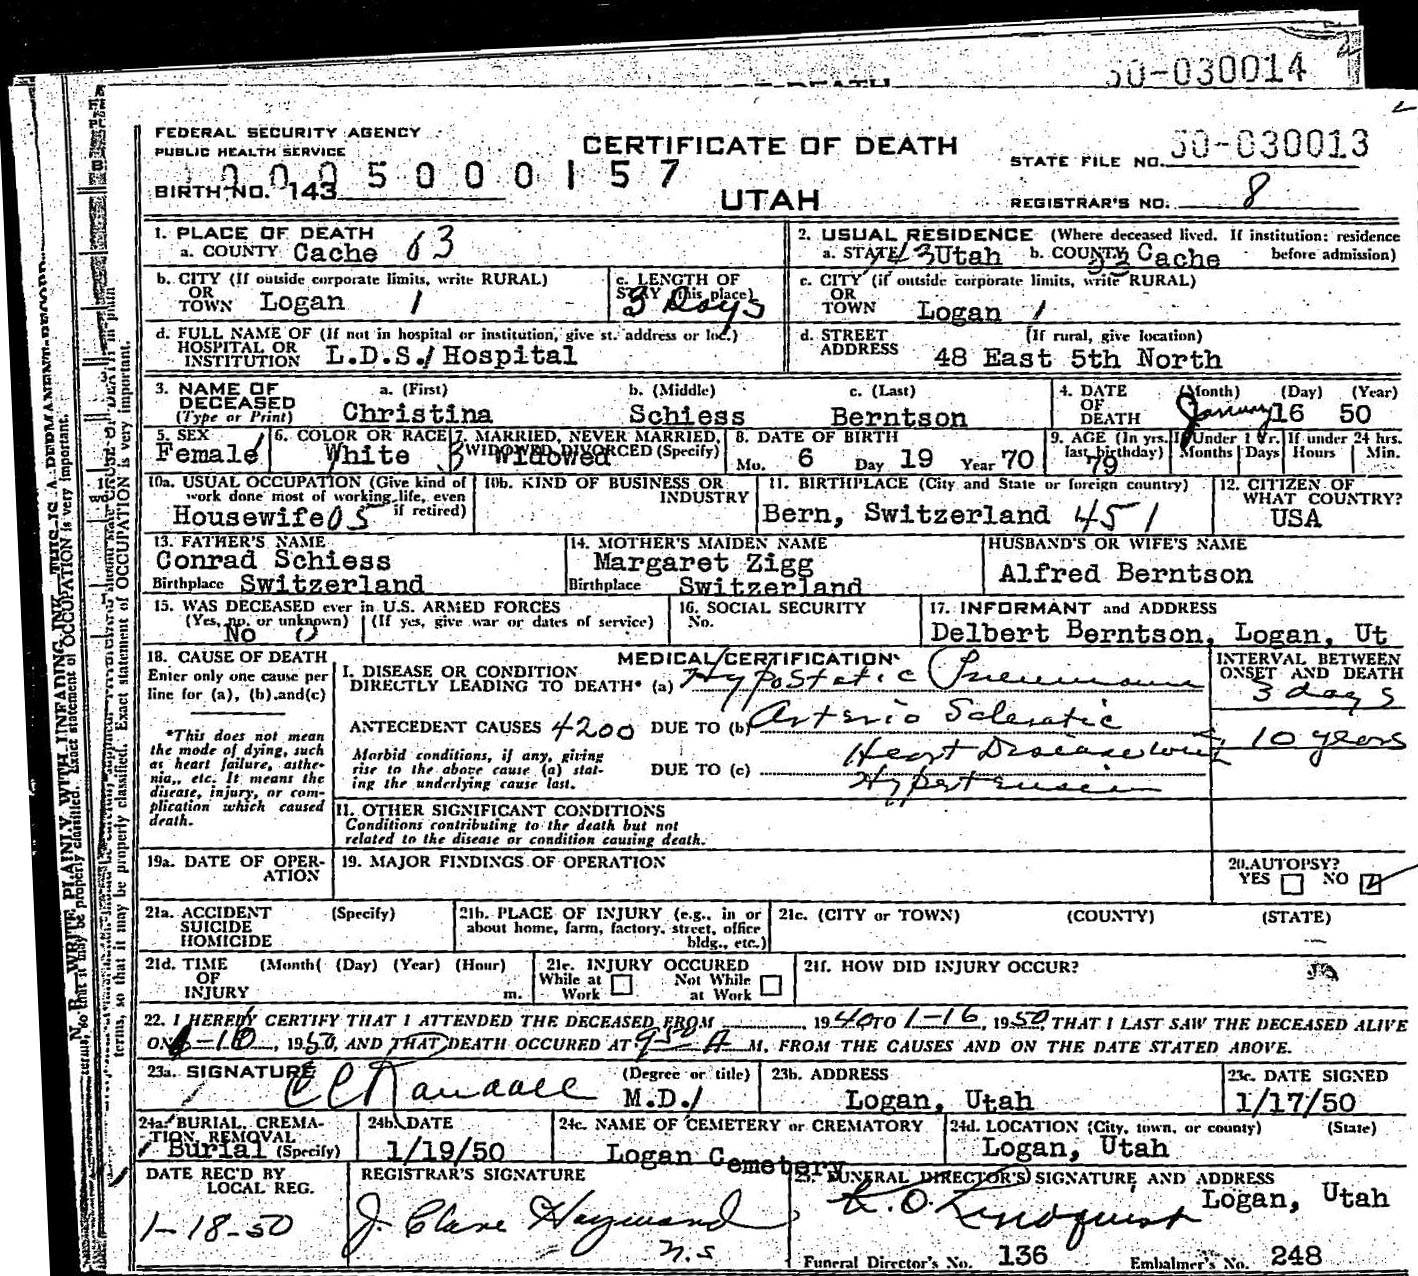 50-030014
FEDERAL SECURITY AGENCY
PUBLIC HEALTH SERVICE
CERTIFICATE OF DEATH
STATE FILE NO. 50-030013
BIRTH NO. 143
5000157
UTAH
REGISTRAR'S NO. 8
1. PLACE OF DEATH
a. COUNTY Cache 03
2. USUAL RESIDENCE (Where deceased lived. If institution: residence before admission)
a. STATE Utah b. COUNTY Cache
b. CITY (If outside corporate limits, write RURAL) OR TOWN Logan 1
c. LENGTH OF STAY (this place) 3 Days
c. CITY (if outside corporate limits, write RURAL) OR TOWN Logan 1
d. FULL NAME OF (If not in hospital or institution, give st. address or loc.) HOSPITAL OR INSTITUTION L.D.S. Hospital
d. STREET ADDRESS (If rural, give location) 48 East 5th North
3. NAME OF DECEASED (Type or Print)
a. (First) Christina
b. (Middle) Schiess
c. (Last) Berntson
4. DATE OF DEATH (Month) (Day) (Year) January 16 50
5. SEX Female
6. COLOR OR RACE White
7. MARRIED, NEVER MARRIED, WIDOWED DIVORCED (Specify) Widowed
8. DATE OF BIRTH Mo. 6 Day 19 Year 70
9. AGE (In yrs. last birthday) 79
If Under 1 Yr. Months Days
If under 24 hrs. Hours Min.
10a. USUAL OCCUPATION (Give kind of work done most of working life, even if retired) Housewife 05
10b. KIND OF BUSINESS OR INDUSTRY
11. BIRTHPLACE (City and State or foreign country) Bern, Switzerland 451
12. CITIZEN OF WHAT COUNTRY? USA
13. FATHER'S NAME
Conrad Schiess
Birthplace Switzerland
14. MOTHER'S MAIDEN NAME
Margaret Zigg
Birthplace Switzerland
HUSBAND'S OR WIFE'S NAME
Alfred Berntson
15. WAS DECEASED ever in U.S. ARMED FORCES
(Yes, no, or unknown) (If yes, give war or dates of service)
No 0
16. SOCIAL SECURITY No.
17. INFORMANT and ADDRESS
Delbert Berntson, Logan, Ut
18. CAUSE OF DEATH
Enter only one cause per line for (a), (b), and (c)
*This does not mean the mode of dying, such as heart failure, asthenia, etc. It means the disease, injury, or complication which caused death.
MEDICAL CERTIFICATION
INTERVAL BETWEEN ONSET AND DEATH
I. DISEASE OR CONDITION DIRECTLY LEADING TO DEATH* (a) Hypostatic Pneumonia
3 days
ANTECEDENT CAUSES 4200 DUE TO (b) Arterio Sclerotic
Heart Disease with
10 years
Morbid conditions, if any, giving rise to the above cause (a) stating the underlying cause last.
DUE TO (c) Hypertension
II. OTHER SIGNIFICANT CONDITIONS
Conditions contributing to the death but not related to the disease or condition causing death.
19a. DATE OF OPERATION
19. MAJOR FINDINGS OF OPERATION
20. AUTOPSY?
YES NO
21a. ACCIDENT SUICIDE HOMICIDE (Specify)
21b. PLACE OF INJURY (e.g., in or about home, farm, factory, street, office bldg., etc.)
21c. (CITY or TOWN) (COUNTY) (STATE)
21d. TIME OF INJURY (Month( (Day) (Year) (Hour) m.
21e. INJURY OCCURED
While at Work Not While at Work
21f. HOW DID INJURY OCCUR?
22. I HEREBY CERTIFY THAT I ATTENDED THE DECEASED FROM 1940 TO 1-16, 1950, THAT I LAST SAW THE DECEASED ALIVE
ON 1-16, 1950, AND THAT DEATH OCCURED AT 9 A M. FROM THE CAUSES AND ON THE DATE STATED ABOVE.
23a. SIGNATURE (Degree or title)
C C Randall M.D.
23b. ADDRESS
Logan, Utah
23c. DATE SIGNED
1/17/50
24a. BURIAL, CREMATION, REMOVAL (Specify) Burial
24b. DATE
1/19/50
24c. NAME OF CEMETERY or CREMATORY
Logan Cemetery
24d. LOCATION (City, town, or county) (State)
Logan, Utah
DATE REC'D BY LOCAL REG.
1-18-50
REGISTRAR'S SIGNATURE
J. Clare Hayward
n.s
25. FUNERAL DIRECTOR'S SIGNATURE AND ADDRESS
K.O. Lindquist Logan, Utah
Funeral Director's No. 136 Embalmer's No. 248